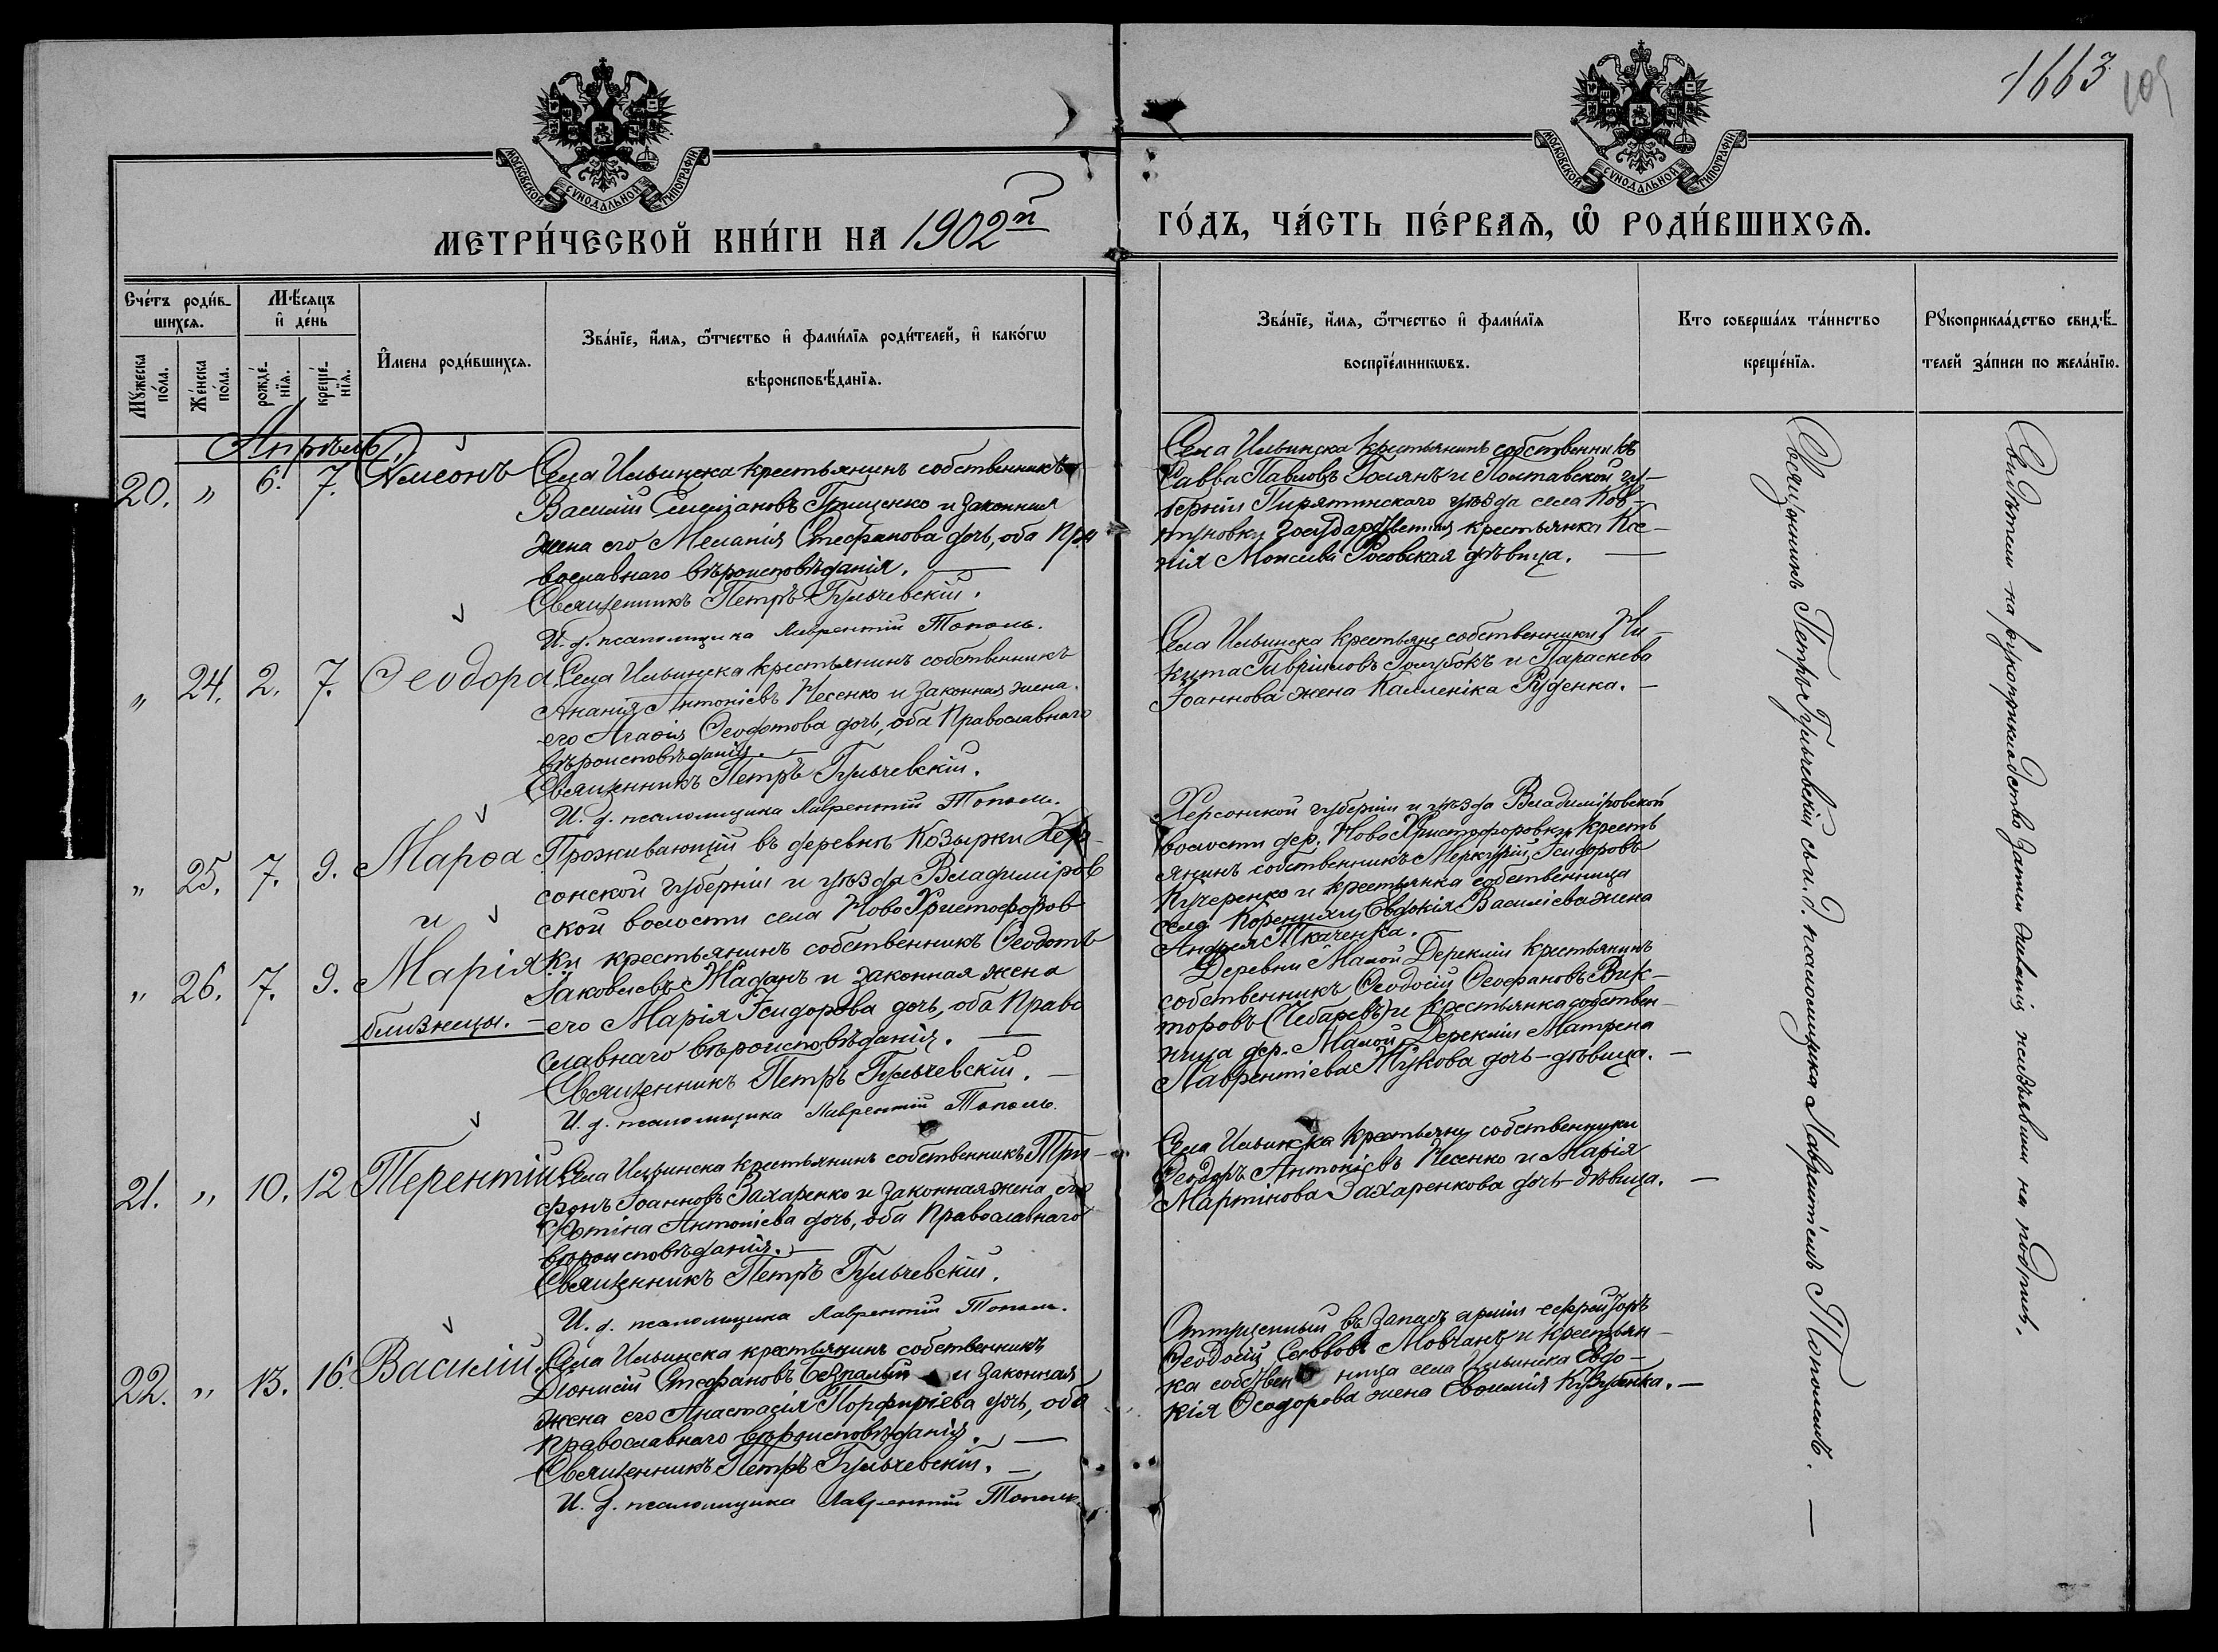 1663
109
МОСКОВСКОЙ СУНОДАЛЬНОЙ ТИПОГРАФІИ
МОСКОВСКОЙ СУНОДАЛЬНОЙ ТИПОГРАФІИ
МЕТРИ́ЧЕСКОЙ КНИ́ГИ НА 1902й
ГО́ДЪ, ЧА́СТЬ ПЕ́РВАѦ, Ѽ РОДИ́ВШИХСѦ.
Счéтъ родив-
шихсѧ.
Мꙋжеска пола.
Женска пола.
Мѣсѧцъ
и день
рожде-
нїѧ.
креще-
нїѧ.
Имена родившихсѧ.
Званїе, имѧ, ѿчество и фамилїѧ родителей, и какогѡ
вѣроисповѣданїѧ.
Званїе, имѧ, ѿчество и фамилїѧ
воспрїемникѡвъ.
Кто совершалъ таинство
крещенїѧ.
Рꙋкоприкладство свидѣ-
телей записи по желанїю.
Апрѣль.
20. „ 6. 7.
Села Ильинска крестьянинъ собственникъ
Василій Грищенко и законная
жена его Меланія Стефанова дочь, оба Пра
вославнаго вѣроисповѣданія. —
Священникъ Петръ Гульчевскій.
И. д. псаломщика Лаврентій Тополь.
Села Ильинска крестьянинъ собственникъ
Савва Павловъ Голянъ и Полтавской гу-
берніи Пирятинскаго уѣзда села Ков-
государственная крестьянка Ксе-
нія Росовская дѣвица. —
„ 24. 2. 7. Ѳеодора
Села Ильинска крестьянинъ собственникъ
Ананія Антоніевъ Чесенко и законная жена
его Агаѳія Ѳеодотова дочь, оба Православнаго
вѣроисповѣданія. —
Священникъ Петръ Гульчевскій.
И. д. псаломщика Лаврентій Тополь.
Села Ильинска крестьяне собственники Ни-
кита Гавріиловъ Голубокъ и Параскева
Іоаннова жена Каленіка Руденка. —
„ 25. 7. 9. Марѳа
и
„ 26. 7. 9. Марія
близнецы. —
Проживающій въ деревнѣ Козырки Хер-
сонской губерніи и уѣзда Владиміров
ской волости села НовоХристофоров
ки крестьянинъ собственникъ Ѳеодотъ
Іаковлевъ Жаданъ и законная жена
его Марія Ісидорова дочь, оба Право
славнаго вѣроисповѣданія. —
Священникъ Петръ Гульчевскій. —
И. д. псаломщика Лаврентій Тополь.
Херсонской губерніи и уѣзда Владиміровской
волости дер. НовоХристофоровки кресть
янинъ собственникъ Меркурій Ісидоровъ
Кучеренко и крестьянка собственница
села Коренихи Евдокія Василіева жена
Андрея Ткаченка.
Деревни Малой Дереклии крестьянинъ
собственникъ Ѳеодосій Ѳеофановъ Вик-
торовъ (Чебаревъ) и крестьянка собствен-
ница дер. Малой Дереклии Матрена
Лаврентіева Жукова дочь-дѣвица. —
21. „ 10. 12 Терентій
Села Ильинска крестьянинъ собственникъ Три-
фонъ Іоанновъ Захаренко и законная жена его
Фотіна Антоніева дочь, оба Православнаго
вѣроисповѣданія. —
Священникъ Петръ Гульчевскій.
И. д. псаломщика Лаврентій Тополь.
Села Ильинска крестьяне собственники
Ѳеодоръ Антоніевъ Чесенко и Марія
Мартінова Захаренкова дочь-дѣвица. —
22. „ 13. 16. Василій
Села Ильинска крестьянинъ собственникъ
Діонисій Стефановъ Безпалый и законная
жена его Анастасія Порфиріева дочь, оба
Православнаго вѣроисповѣданія. —
Священникъ Петръ Гульчевскій. —
И. д. псаломщика Лаврентій Тополь.
Отпущенный въ запасъ арміи ефрейторъ
Ѳеодосій Савввовъ Мовчанъ и крестьян-
ка собственница села Ильинска Евдо-
кія Ѳеодорова жена Евѳимія Кузуенка. —
Священникъ Петръ Гульчевскій съ и. д. псаломщика Лаврентіемъ Тополемъ. —
Свидѣтели на рукоприкладство записи желанія не изъявили на подпись.